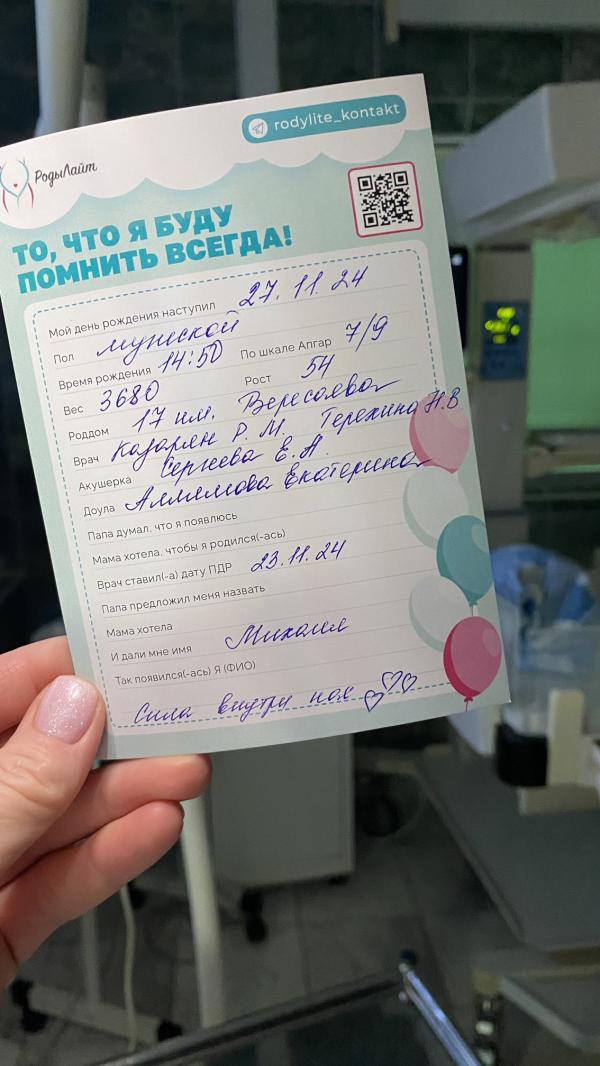 rodylite_kontakt
РодыЛайт
ТО, ЧТО Я БУДУ
ПОМНИТЬ ВСЕГДА!
Мой день рождения наступил 27.11.24
Пол мужской
Время рождения 14:50 По шкале Апгар 7/9
Вес 3680 Рост 54
Роддом 17 им. Вересаева
Врач Казарян Р.М. Терехина Н.В
Акушерка Сергеева Е.А.
Доула Алямова Екатерина
Папа думал, что я появлюсь
Мама хотела, чтобы я родился(-ась)
Врач ставил(-а) дату ПДР 23.11.24
Папа предложил меня назвать
Мама хотела
И дали мне имя Михаил
Так появился(-ась) Я (ФИО)
Сила внутри нас